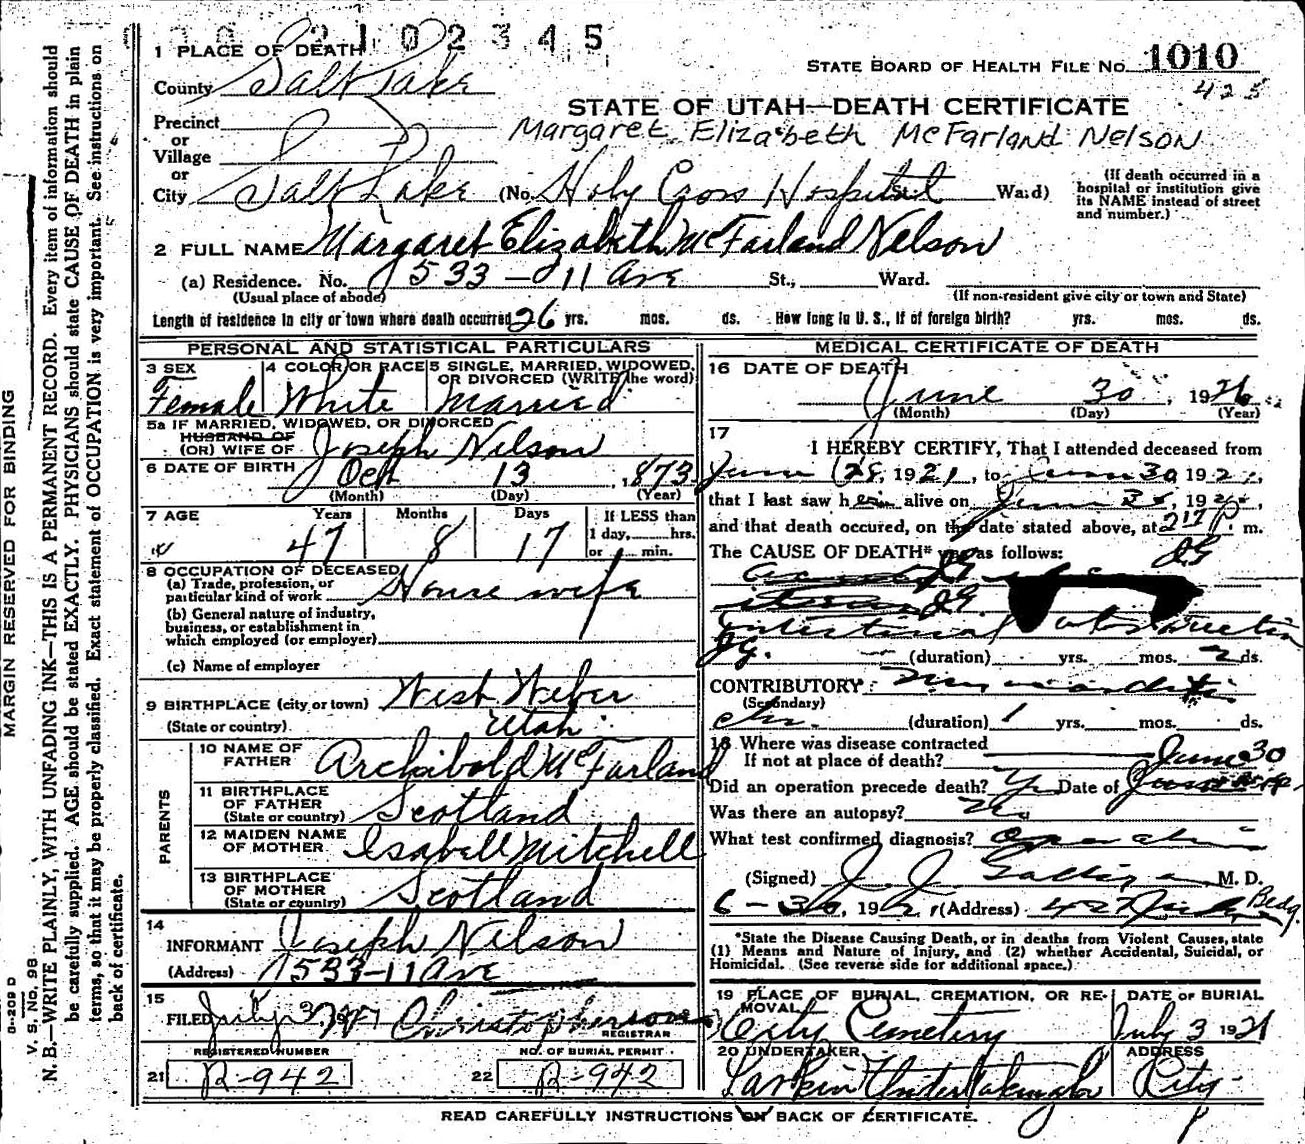 2 1 0 2 3 4 5
STATE BOARD OF HEALTH FILE No. 1010
425
STATE OF UTAH—DEATH CERTIFICATE
Margaret Elizabeth McFarland Nelson
1 PLACE OF DEATH
County Salt Lake
Precinct
or
Village
or
City Salt Lake (No. Holy Cross Hospital St. Ward)
(If death occurred in a
hospital or institution give
its NAME instead of street
and number.)
2 FULL NAME Margaret Elizabeth McFarland Nelson
(a) Residence. No. 533 - 11 Ave St., Ward.
(Usual place of abode) (If non-resident give city or town and State)
Length of residence in city or town where death occurred 26 yrs. mos. ds. How long in U. S., if of foreign birth? yrs. mos. ds.
PERSONAL AND STATISTICAL PARTICULARS
3 SEX
Female
4 COLOR OR RACE
White
5 SINGLE, MARRIED, WIDOWED,
OR DIVORCED (WRITE the word)
Married
5a IF MARRIED, WIDOWED, OR DIVORCED
HUSBAND OF
(OR) WIFE OF Joseph Nelson
6 DATE OF BIRTH Oct 13, 1873
(Month) (Day) (Year)
7 AGE Years Months Days If LESS than
47 8 17 1 day, hrs.
or min.
8 OCCUPATION OF DECEASED
(a) Trade, profession, or
particular kind of work Housewife
(b) General nature of industry,
business, or establishment in
which employed (or employer)
(c) Name of employer
9 BIRTHPLACE (city or town) West Weber
(State or country) Utah
PARENTS
10 NAME OF
FATHER Archibold McFarland
11 BIRTHPLACE
OF FATHER
(State or country) Scotland
12 MAIDEN NAME
OF MOTHER Isabell Mitchell
13 BIRTHPLACE
OF MOTHER
(State or country) Scotland
14
INFORMANT Joseph Nelson
(Address) 533-11 Ave
15
FILED July 3, Christopherson
REGISTRAR
REGISTERED NUMBER
21 B-942
NO. OF BURIAL PERMIT
22 B-942
MEDICAL CERTIFICATE OF DEATH
16 DATE OF DEATH
June 30, 19
(Month) (Day) (Year)
17
I HEREBY CERTIFY, That I attended deceased from
June 28, 1921, to June 30 192
that I last saw her alive on June 19
and that death occured, on the date stated above, at 217 P m.
The CAUSE OF DEATH* was as follows:
JG
JG.
intestinal obstruction
JG. (duration) yrs. mos. 2 ds.
CONTRIBUTORY Myocarditis
(Secondary)
chr. (duration) 1 yrs. mos. ds.
18 Where was disease contracted
If not at place of death?
June 30
Did an operation precede death? Yes Date of
Was there an autopsy? No
What test confirmed diagnosis? Operation
(Signed) J. J. Galligan M. D.
6-30, 192 (Address) 427 Bldg.
*State the Disease Causing Death, or in deaths from Violent Causes, state
(1) Means and Nature of Injury, and (2) whether Accidental, Suicidal, or
Homicidal. (See reverse side for additional space.)
19 PLACE OF BURIAL, CREMATION, OR RE-
MOVAL
City Cemetery
DATE OF BURIAL
July 3 1921
20 UNDERTAKER
Larkin Undertaking Co
ADDRESS
City
READ CAREFULLY INSTRUCTIONS ON BACK OF CERTIFICATE.
MARGIN RESERVED FOR BINDING
V. S. No. 98
N. B.—WRITE PLAINLY, WITH UNFADING INK—THIS IS A PERMANENT RECORD. Every item of information should
be carefully supplied. AGE should be stated EXACTLY. PHYSICIANS should state CAUSE OF DEATH in plain
terms, so that it may be properly classified. Exact statement of OCCUPATION is very important. See instructions on
back of certificate.